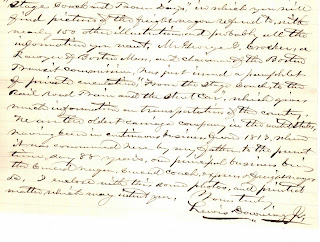 Stage Coach and Tavern Days" in which you will
find pictures of the freight wagon referred to, with
nearly 100 other illustrations & probably all the
information you want, Mr. George G. Crocker, a
Lawyer of Boston Mass, and chairman of the Boston
Transit Commission, has just issued a pamphlet
of private circulation, "From the Stage Coach to the
Rail Road Train and the Street Car", which gives
much information on transportation of the country.
We are the oldest carriage company in the United States,
having been in continuous business since 1813, when
it was commenced here by my father to the present
time, say 88 years, our principal business being
the Concord wagon, Concord coach, express & freight wagons
&c, I enclose with this some photos, and printed
matter which may interest you.
Yours truly,
Lewis Downing Jr